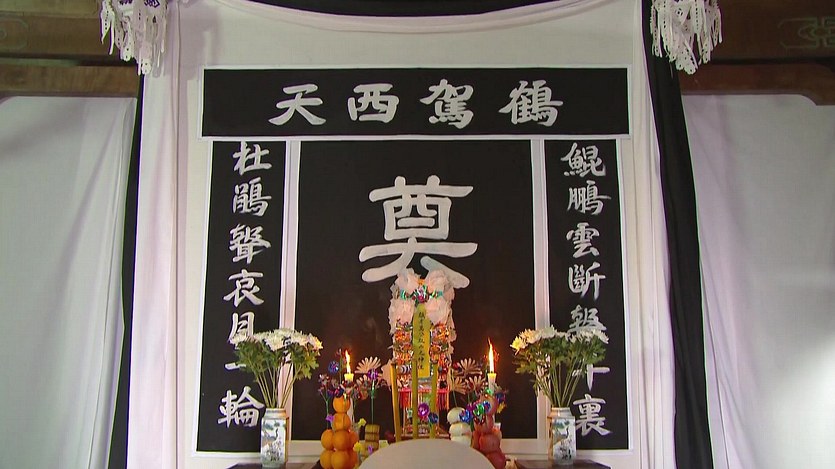 鶴駕西天
鯤鵬雲斷千裏
奠
杜鵑聲哀月一輪